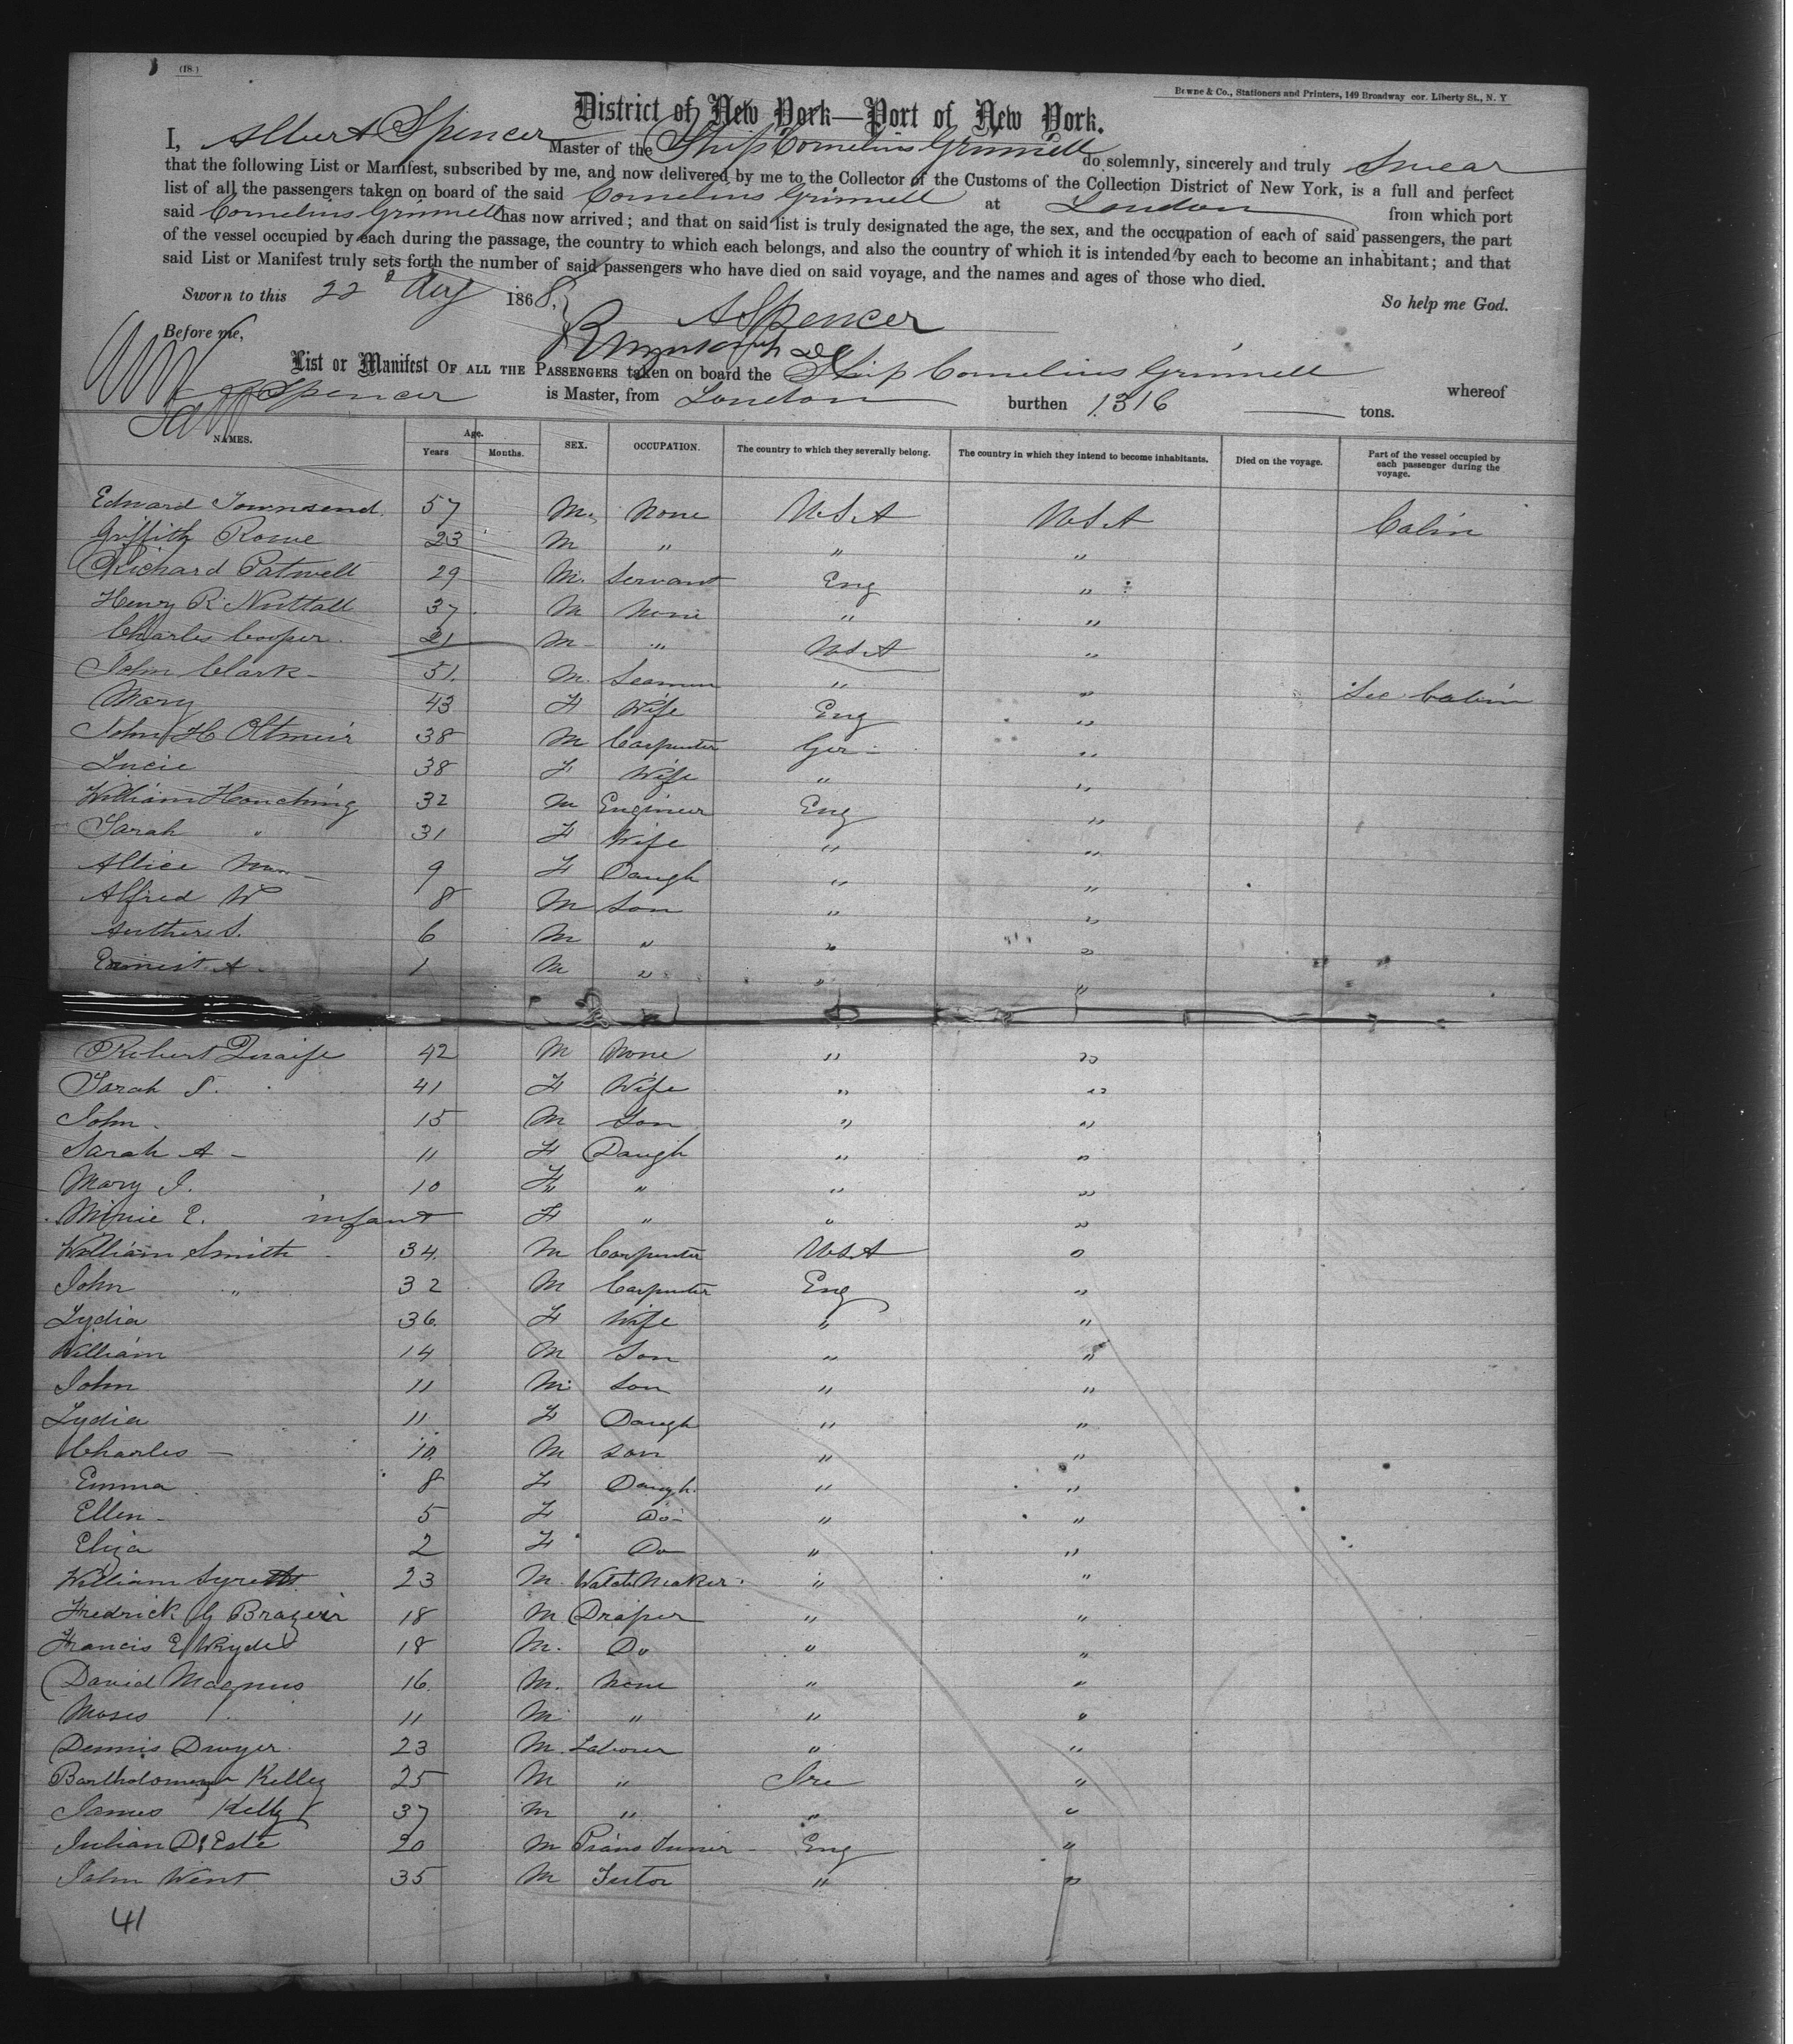 (18.)
Bowne & Co., Stationers and Printers, 149 Broadway cor. Liberty St., N. Y
District of New York—Port of New York.
I, Albert Spencer Master of the Ship Cornelius Grinnell do solemnly, sincerely and truly Swear
that the following List or Manifest, subscribed by me, and now delivered by me to the Collector of the Customs of the Collection District of New York, is a full and perfect
list of all the passengers taken on board of the said Cornelius Grinnell at London from which port
said Cornelius Grinnell has now arrived; and that on said list is truly designated the age, the sex, and the occupation of each of said passengers, the part
of the vessel occupied by each during the passage, the country to which each belongs, and also the country of which it is intended by each to become an inhabitant; and that
said List or Manifest truly sets forth the number of said passengers who have died on said voyage, and the names and ages of those who died.
Sworn to this 22d Aug 1868, So help me God.
A Spencer
Before me,
List or Manifest OF ALL THE PASSENGERS taken on board the Ship Cornelius Grinnell whereof
Spencer is Master, from London burthen 1316 tons.
NAMES. Age. Years Months. SEX. OCCUPATION. The country to which they severally belong. The country in which they intend to become inhabitants. Died on the voyage. Part of the vessel occupied by each passenger during the voyage.
Edward Townsend 57 M. None U.S.A U.S.A Cabin
Griffith Rowe 23 M " " "
Richard Patwell 29 M. Servant Eng "
Henry R. Nuttall 37 M None " "
Charles Cooper 21 M " U.S.A "
John Clark 51. M. Seaman " " Sec Cabin
Mary 43 F Wife Eng "
John H Oltmeir 38 M Carpenter Ger "
Lucie 38 F Wife " "
William Honching 32 M Engineer Eng "
Sarah " 31 F Wife " "
Allice M 9 F Daugh " "
Alfred W 8 M Son " "
Authur S. 6 M " " "
Ernnist A 1 M " " "
Robert Quaife 42 M None " "
Sarah S. 41 F Wife " "
John 15 M Son " "
Sarah A 11 F Daugh " "
Mary J. 10 F " " "
Minie E. infant F " " "
William Smith 34. M Carpenter U.S.A "
John " 32 M Carpenter Eng "
Lydia 36 F Wife " "
William 14 M Son " "
John 11 M Son " "
Lydia 11 F Daugh " "
Charles 10 M son " "
Emma 8 F Daugh. " "
Ellen 5 F Do " "
Eliza 2 F Do " "
William Syrett 23 M. Watch Maker " "
Fredrick G Brazeir 18 M Draper " "
Francis E Wryde 18 M. Do " "
David Magnus 16 M. None " "
Moses 11 M " " "
Dennis Dwyer 23 M Labourer " "
Bartholomeyw Kelley 25 M " Ire "
James Kelly 37 M " " "
Julian D'Este 20 M Piano Tunir Eng "
John Went 35 M Tutor " "
41